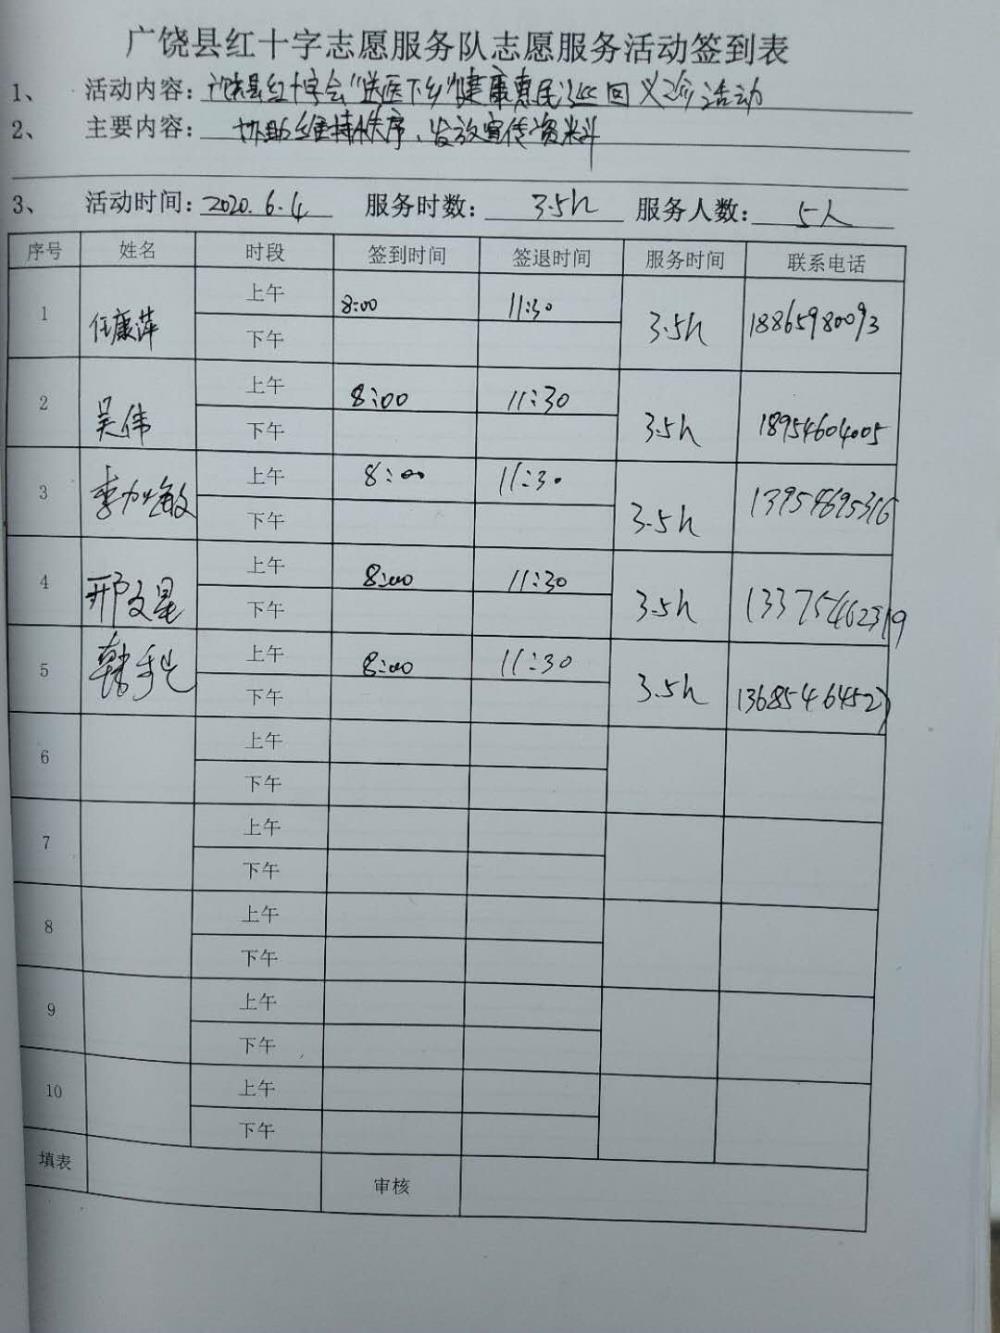 广饶县红十字志愿服务队志愿服务活动签到表
1、 活动内容: 广饶县红十字会"送医下乡"健康惠民巡回义诊活动
2、 主要内容: 协助维持秩序、发放宣传资料
3、 活动时间: 2020.6.4 服务时数: 3.5h 服务人数: 5人
序号 姓名 时段 签到时间 签退时间 服务时间 联系电话
1 任康萍 上午 8:00 11:30 3.5h 18865980093
下午
2 吴伟 上午 8:00 11:30 3.5h 18954604005
下午
3 李 敏 上午 8:00 11:30 3.5h 13954695316
下午
4 邢文星 上午 8:00 11:30 3.5h 13375462319
下午
5 韩 上午 8:00 11:30 3.5h 13685464527
下午
6 上午
下午
7 上午
下午
8 上午
下午
9 上午
下午
10 上午
下午
填表 审核